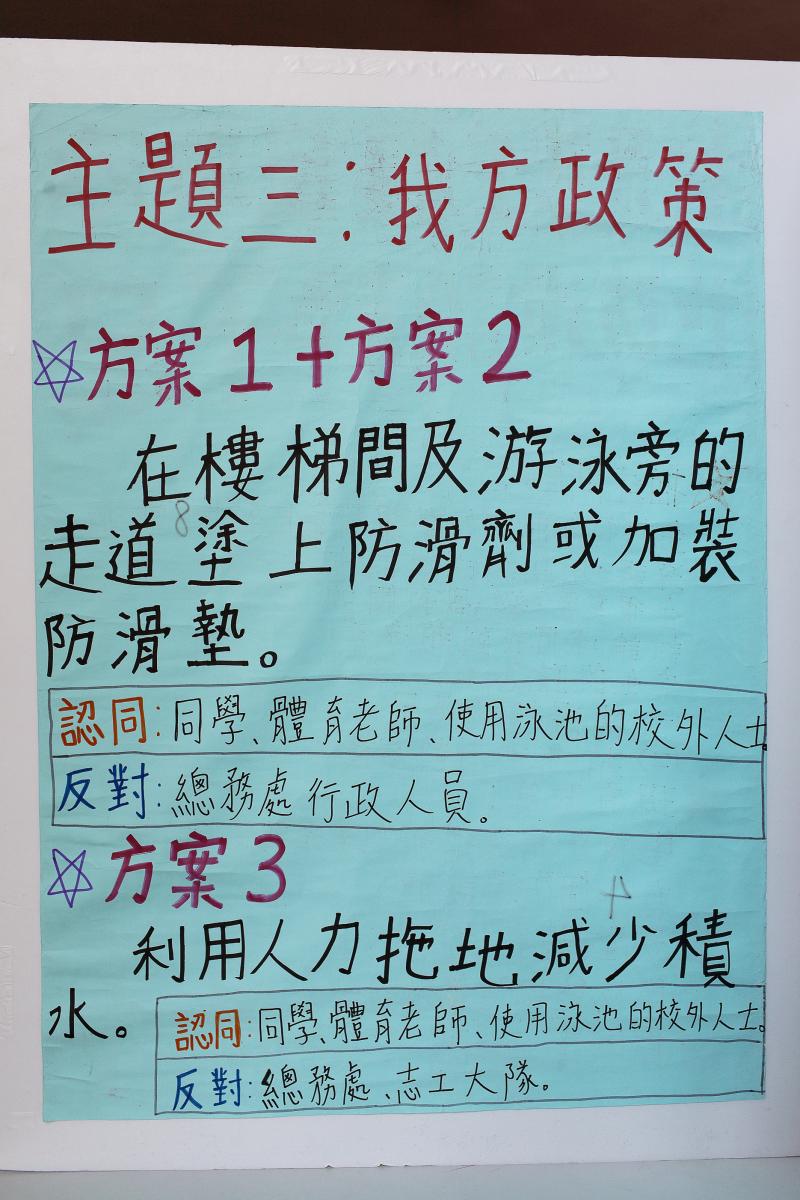 主題三:我方政策
☆方案1+方案2
在樓梯間及游泳旁的
8
走道塗上防滑劑或加裝
防滑墊。
認同:同學、體育老師、使用泳池的校外人士
反對:總務處行政人員。
☆方案3
4
利用人力拖地減少積
水。
認同:同學、體育老師、使用泳池的校外人士。
反對:總務處、志工大隊。